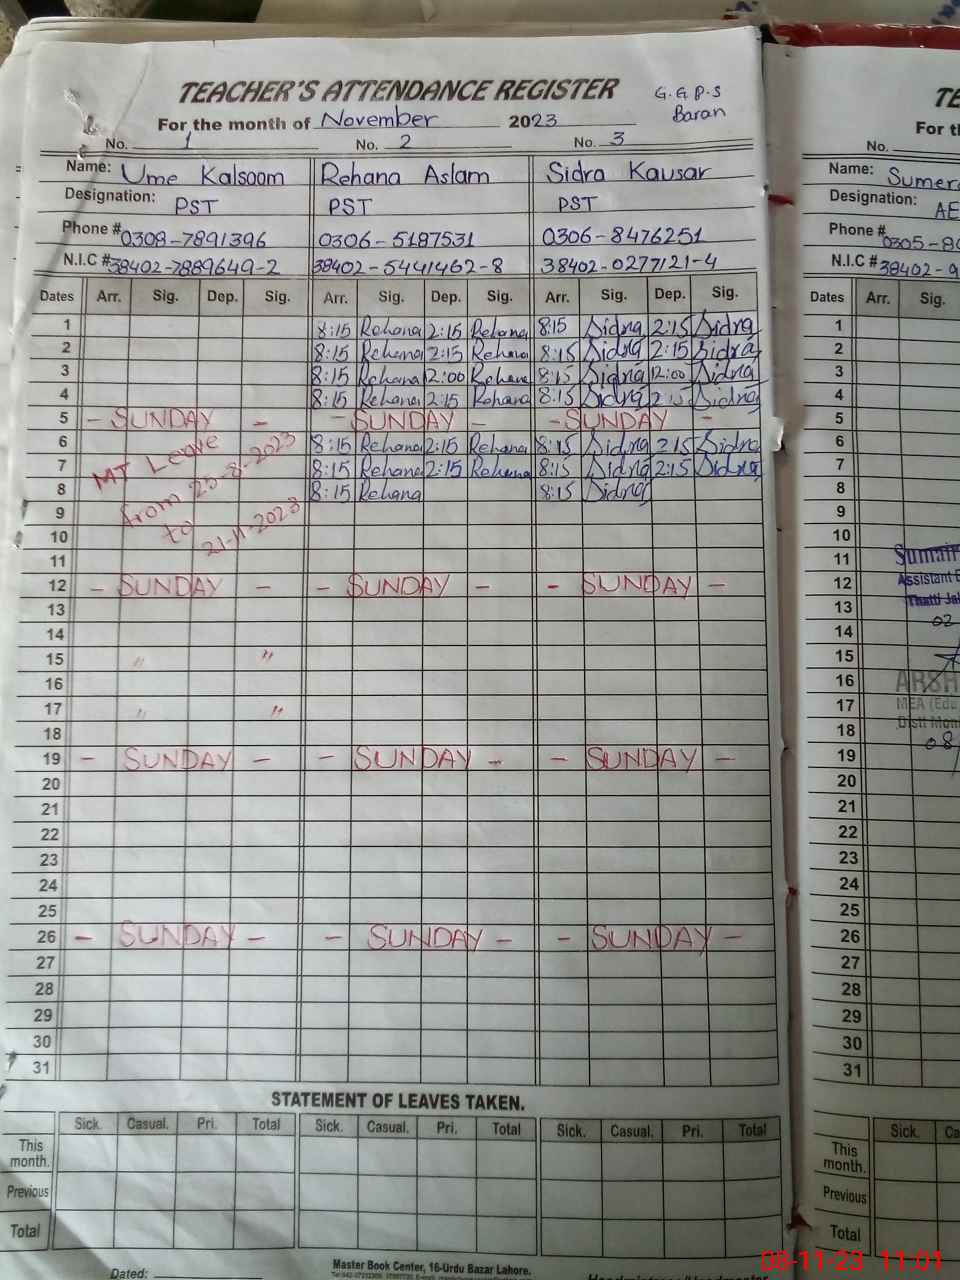 TEACHER'S ATTENDANCE REGISTER
G.G.P.S
Baran
For the month of November 2023
No. 1 No. 2 No. 3
Name: Ume Kalsoom Rehana Aslam Sidra Kausar
Designation: PST PST PST
Phone # 0308-7891396 0306-5187531 0306-8476251
N.I.C # 38402-7889649-2 38402-5441462-8 38402-0277121-4
Dates Arr. Sig. Dep. Sig. Arr. Sig. Dep. Sig. Arr. Sig. Dep. Sig.
1 8:15 Rehana 2:15 Rehana 8:15 Sidra 2:15 Sidra
2 8:15 Rehana 2:15 Rehana 8:15 Sidra 2:15 Sidra
3 8:15 Rehana 12:00 Rehana 8:15 Sidra 12:00 Sidra
4 8:15 Rehana 2:15 Rehana 8:15 Sidra Sidra
5 - SUNDAY - - SUNDAY - - SUNDAY -
6 8:15 Rehana 2:15 Rehana 8:15 Sidra 2:15 Sidra
7 8:15 Rehana 2:15 Rehana 8:15 Sidra 2:15 Sidra
8 8:15 Rehana 8:15 Sidra
MT Leave
from 25-8-2023
to
21-11-2023
9
10
11
12 - SUNDAY - - SUNDAY - - SUNDAY -
13
14
15 " "
16
17 " "
18
19 - SUNDAY - - SUNDAY - - SUNDAY -
20
21
22
23
24
25
26 - SUNDAY - - SUNDAY - - SUNDAY -
27
28
29
30
31
STATEMENT OF LEAVES TAKEN.
Sick. Casual. Pri. Total Sick. Casual. Pri. Total Sick. Casual. Pri. Total
This month.
Previous
Total
Master Book Center, 16-Urdu Bazar Lahore.
Dated:
TE
For th
No.
Name: Sumer
Designation: AE
Phone # 0305-8
N.I.C # 38402-9
Dates Arr. Sig.
1
2
3
4
5
6
7
8
9
10
11 Sumair
12 Assistant
13 Thatti Jal
02
14
15
16 ARSH
17 MEA (Edu
18 Distt Moni
08
19
20
21
22
23
24
25
26
27
28
29
30
31
Sick. Ca
This month.
Previous
Total
08-11-23 11:01